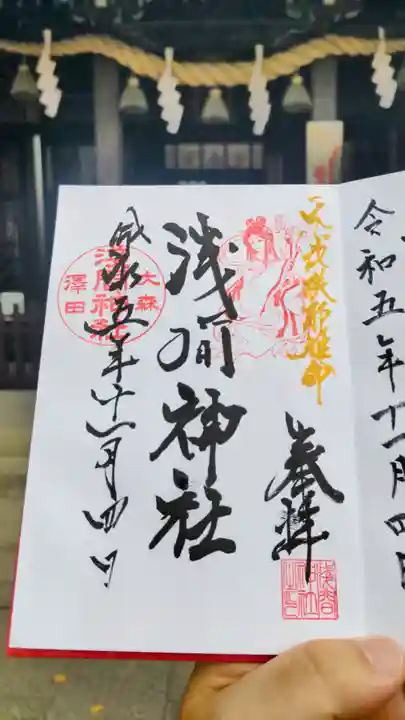 令和五年十一月四日
奉拝
浅間神社
大森
浅間神社
澤田
令和五年十一月四日